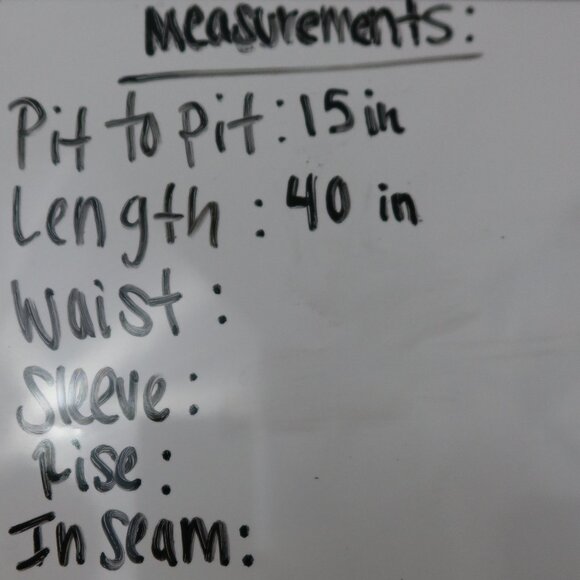 Measurements:
Pit to pit: 15 in
Length: 40 in
Waist:
Sleeve:
Rise:
In seam: